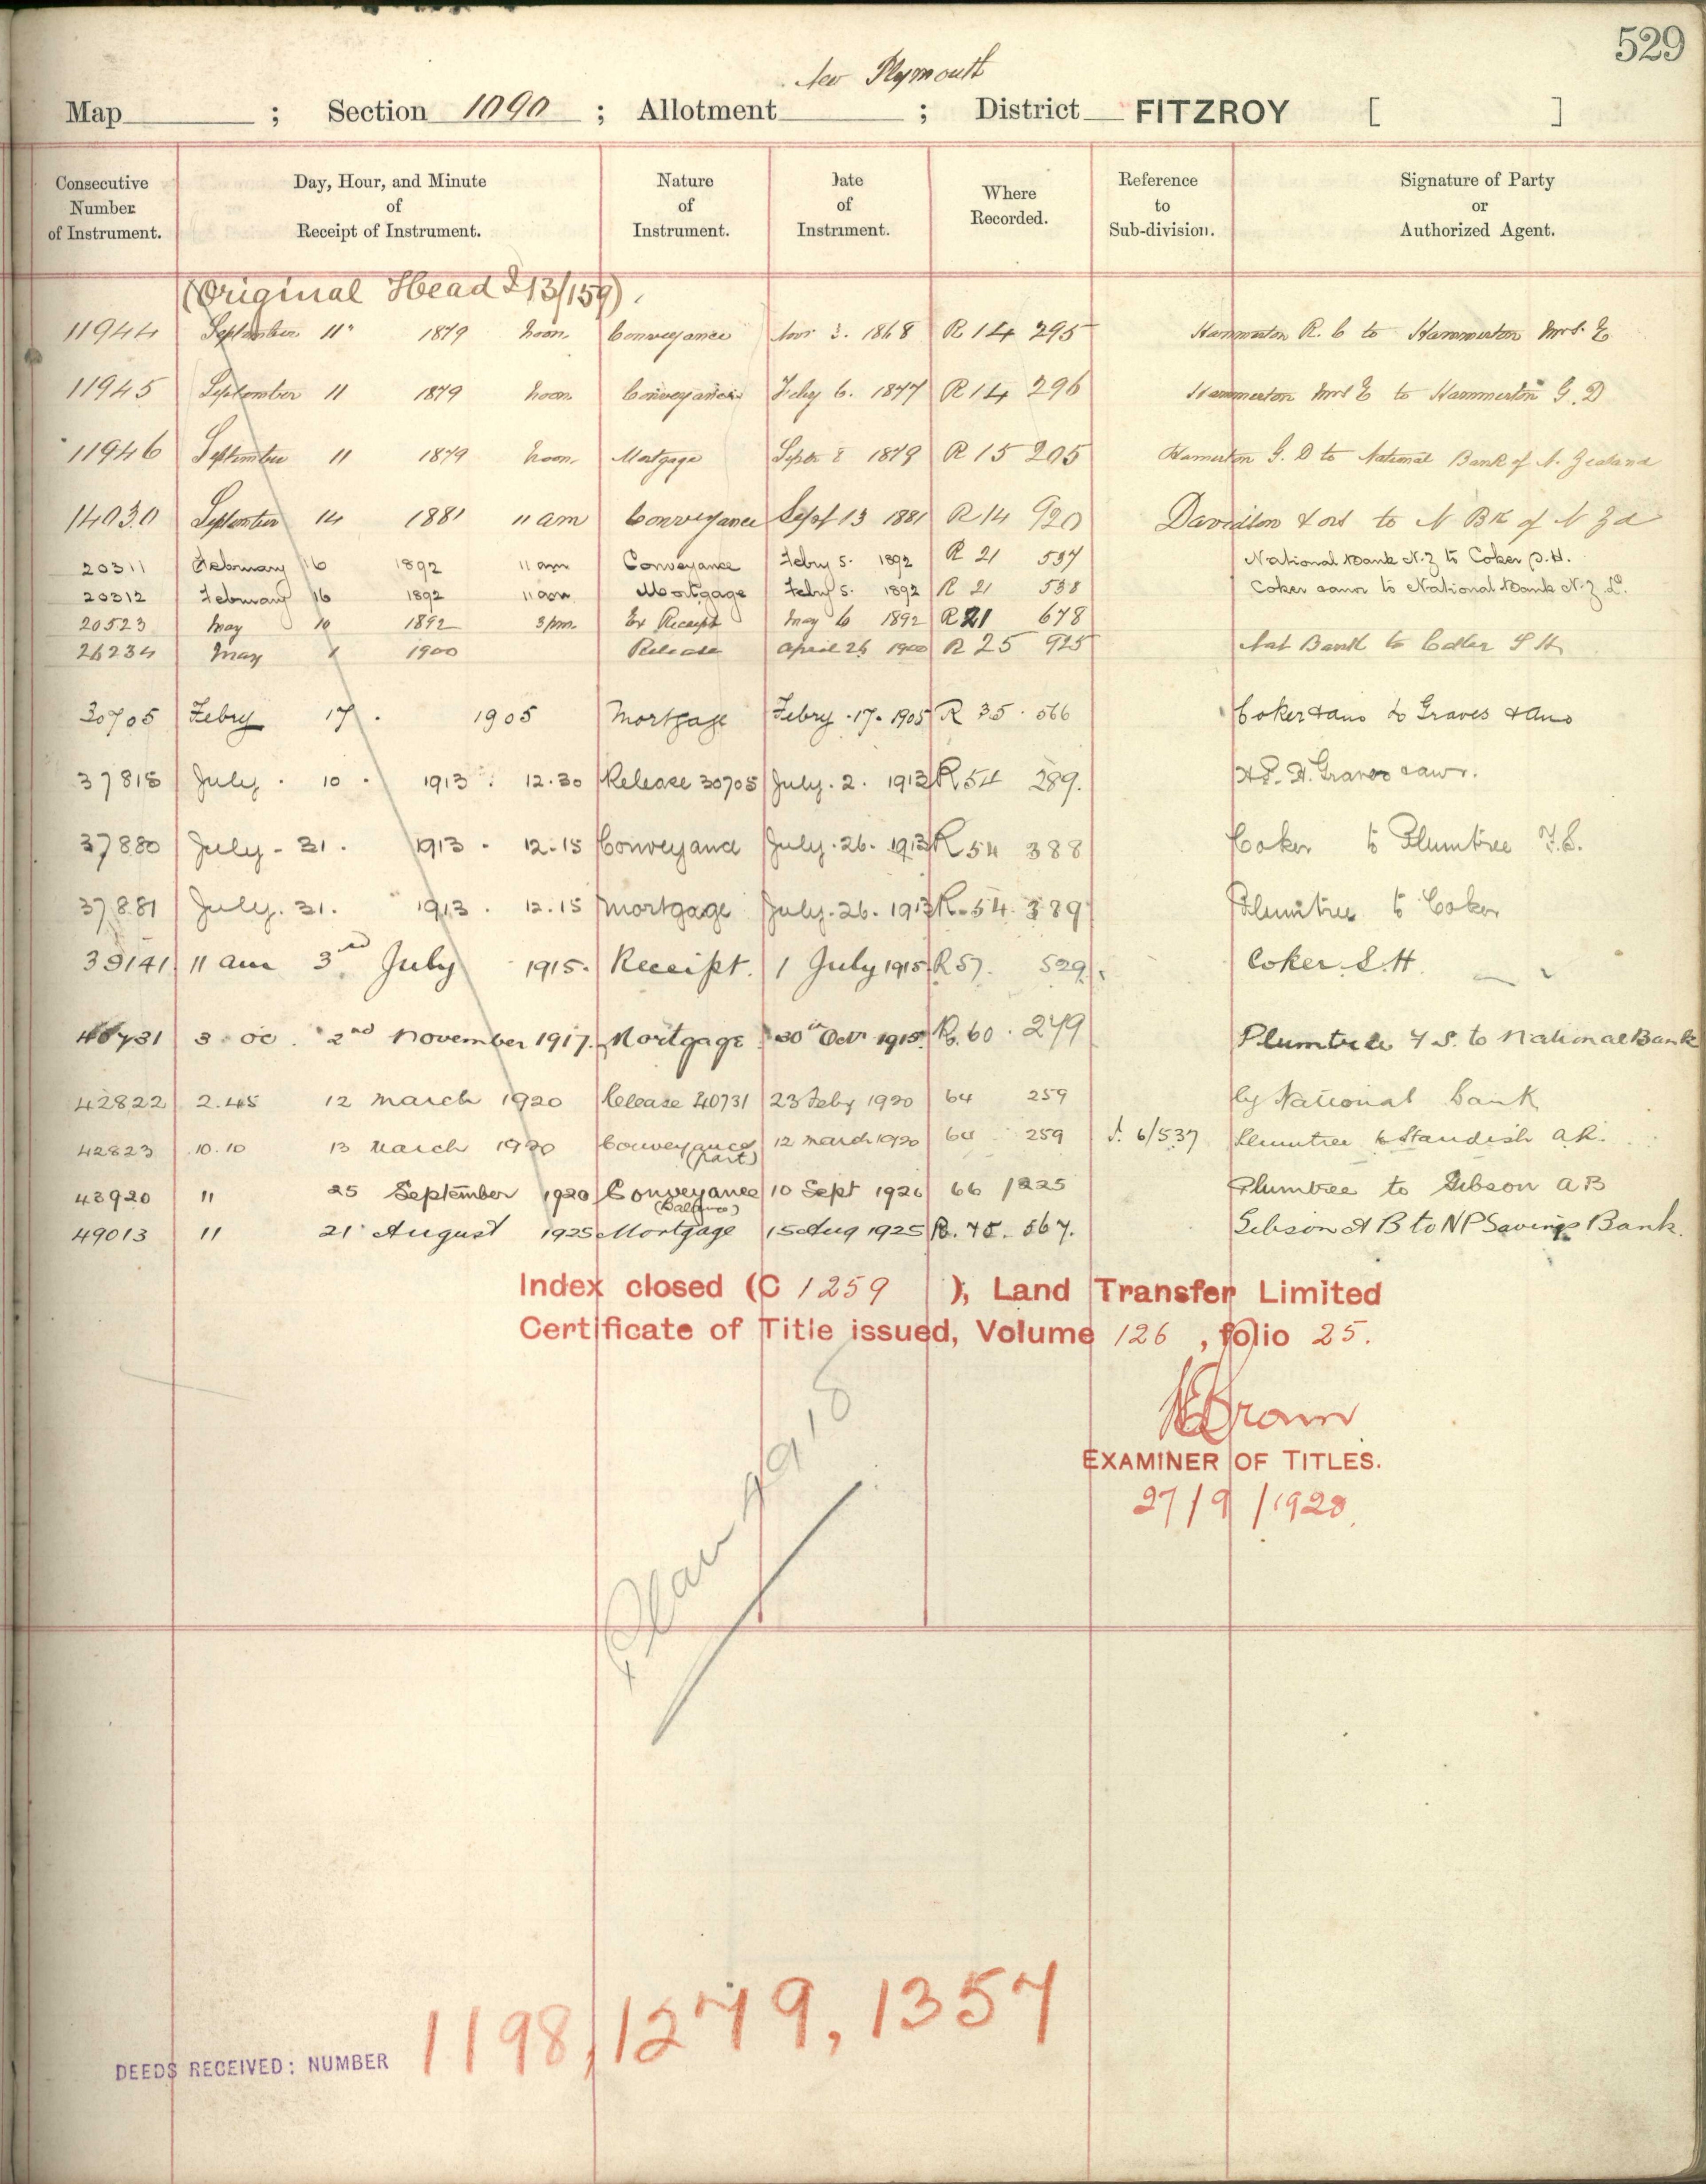 529
New Plymouth
Map ; Section 1090 ; Allotment ; District FITZROY [ ]
Consecutive Number of Instrument. Day, Hour, and Minute of Receipt of Instrument. Nature of Instrument. Date of Instrument. Where Recorded. Reference to Sub-division. Signature of Party or Authorized Agent.
(Original Head I 13/159)
11944 September 11 1879 noon Conveyance Nov 3. 1868 R 14 295 Hammerton R. C to Hammerton Mrs. E
11945 September 11 1879 noon Conveyance Feby 6. 1877 R 14 296 Hammerton Mrs E to Hammerton G. D
11946 September 11 1879 noon Mortgage Septr 8 1879 R 15 205 Hamerton G. D to National Bank of N. Zealand
14030 September 14 1881 11 am Conveyance Sept 13 1881 R 14 920 Davidson & ors to N Bk of N Zd
20311 February 16 1892 11 am Conveyance Febry 5. 1892 R 21 537 National Bank N.Z to Coker S.H.
20312 February 16 1892 11 am Mortgage Febry 5. 1892 R 21 538 Coker & anor to National Bank N.Z. Ld.
20523 May 10 1892 3 pm. Ex Receipt May 6 1892 R 21 678
26234 May 1 1900 Release April 26 1900 R 25 925 Nat Bank to Coker S H
30705 Febry 17. 1905 Mortgage Febry. 17. 1905 R 35. 566 Coker & ano to Graves & Ano
37815 July. 10. 1913. 12.30 Release 30705 July. 2. 1913 R 54 289. Graves
37880 July - 31. 1913. 12.15 Conveyance July. 26. 1913 R 54 388 Coker to Plumtree F.S.
37881 July. 31. 1913. 12.15 Mortgage July. 26. 1913 R. 54. 389 Plumtree to Coker
39141 11 am 3rd July 1915. Receipt. 1 July 1915. R 57. 529. Coker S.H.
40731 3 oc. 2nd November 1917. Mortgage 30th Octr 1915. R. 60. 279 Plumtree F S. to National Bank
42822 2.45 12 March 1920 Release 40731 23 Feby 1920 64 259 by National Bank
42823 10.10 13 March 1920 Conveyance (part) 12 March 1920 64 259 J. 6/537 Plumtree to Standish A.R.
43920 11 25 September 1920 Conveyance (Balance) 10 Sept 1920 66 /225 Plumtree to Gibson A B
49013 11 21 August 1925 Mortgage 15 Aug 1925 R. 75. 567. Gibson A B to NP Savings Bank.
Index closed (C 1259 ), Land Transfer Limited
Certificate of Title issued, Volume 126 , folio 25.
EXAMINER OF TITLES.
27/9/1928
Plan 4918
DEEDS RECEIVED: NUMBER 1198, 1279, 1357